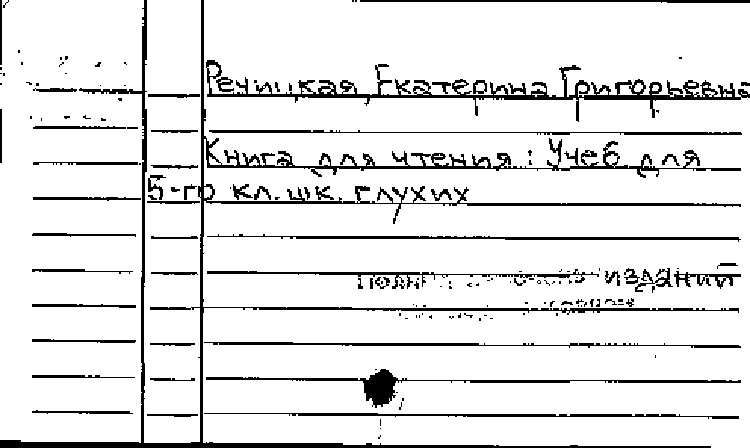 Речицкая, Екатерина Григорьевна
Книга для чтения : Учеб для
5-го кл. шк. глухих
изданий